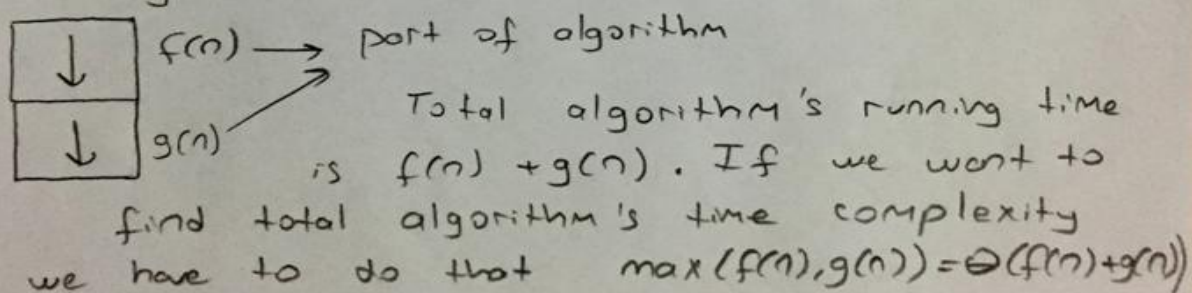 f(n) → part of algorithm
g(n)
Total algorithm's running time
is f(n) + g(n). If we want to
find total algorithm's time complexity
we have to do that max(f(n), g(n)) = Θ(f(n)+g(n))